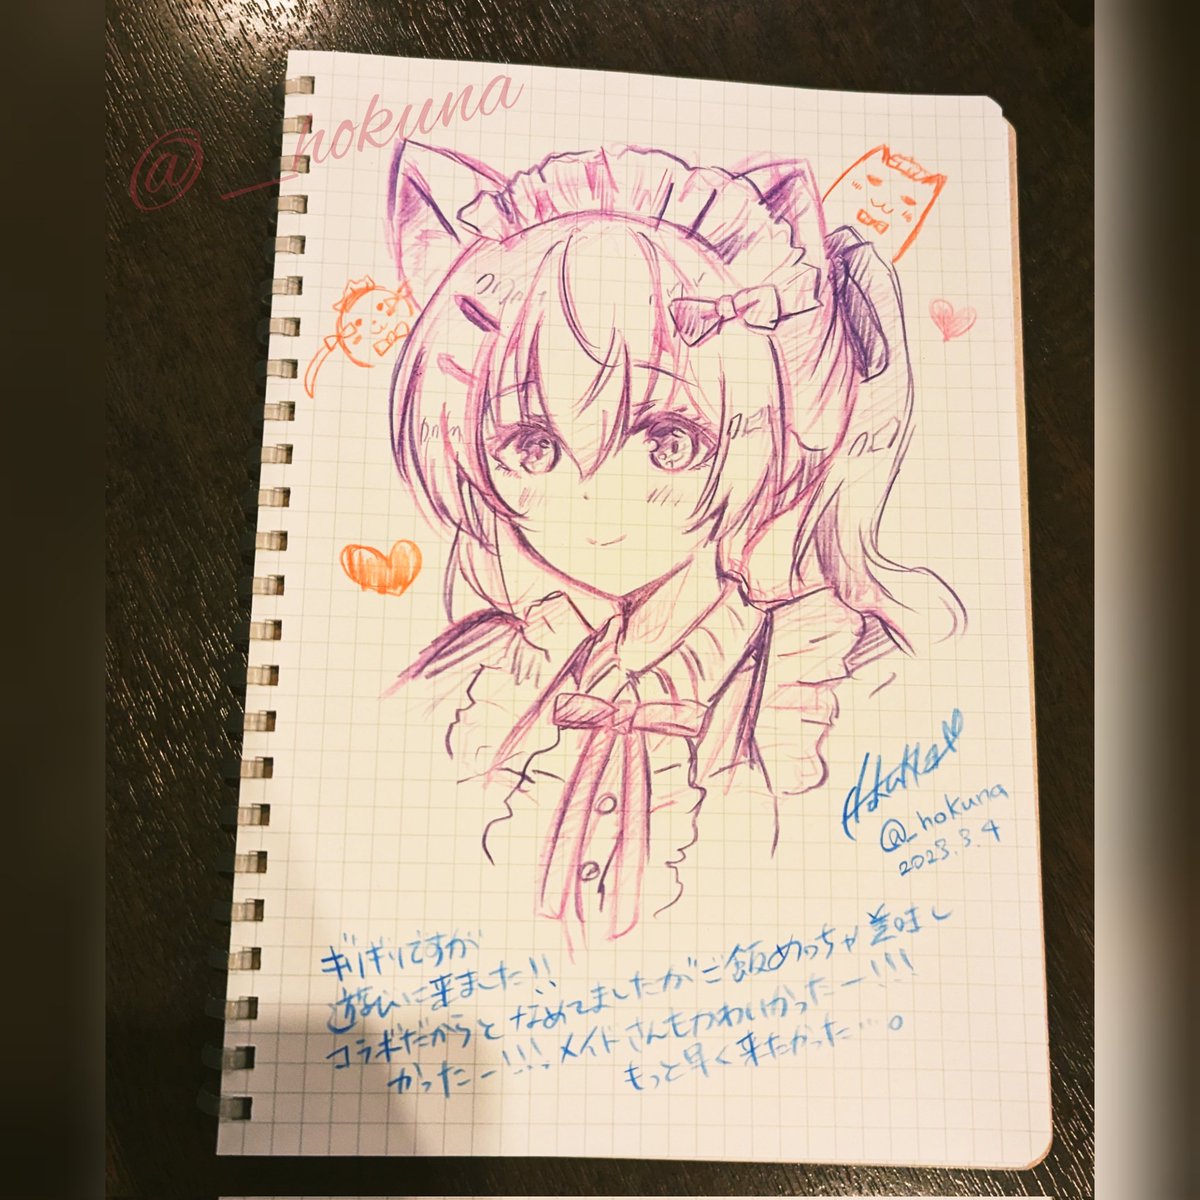 @__hokuna
@_hokuna
2023.3.4
ギリギリですが
遊びに来ました!!
コラボだからと なめてましたがご飯めっちゃ美味し
かったー!!!メイドさんもかわいかったー!!!
もっと早く来たかった…。